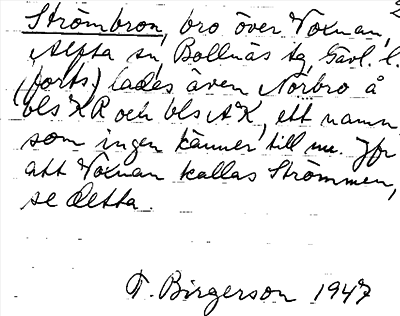 2
Strömbron, bro över Voxnan,
Alfta sn, Bollnäs tg, Gävl. l.
(forts) lades även Norbro å
bls XR och bls AX, ett namn
som ingen känner till nu. Jfr
att Voxnan kallas Strömmen,
se detta.
T. Birgerson 1947